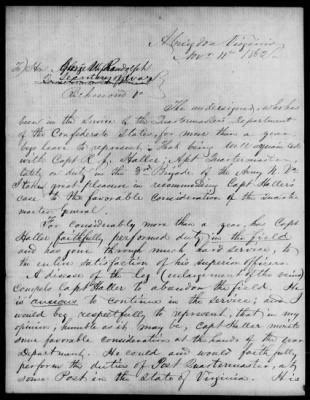 Abingdon Virginia
Nov. 11th 1862
To Hon. George W. Randolph
Secretary of War
Richmond Va
The undersigned, who has
been in the service of the Quartermasters Department
of the Confederate States, for more than a year
begs leave to represent, That being well acquainted
with Capt R. J. Haller, Asst Quartermaster
lately on duty in the 3rd Brigade of the Army N. Va
Takes great pleasure in recommending Capt Haller's
case to the favorable consideration of the Quarter
master General.
For considerably more than a year, has Capt
Haller faithfully performed duty in the field
and has gone through much hard service, to
the entire satisfaction of his superior officers.
A disease of the leg (enlargement of the veins)
compels Capt Haller to abandon the field. He
is anxious to continue in the service; and I
would beg, respectfully to represent, that in my
opinion, humble as it may be, Capt Haller merits
some favorable consideration at the hands of the War
Department. He could and would faithfully
perform the duties of Post Quartermaster, at
some Post in the State of Virginia. He is